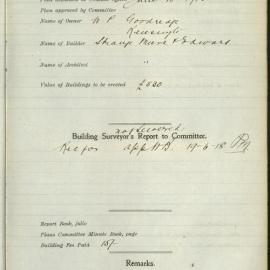 Plans approved by Committee
Name of Owner W P Goodridge
Kensington
Name of Builder Strange Muir & Edwards
Name of Architect "
Value of Buildings to be erected £530
Building Surveyor's Report to Committee.
Rec for app W.B. 19-6-18
Report Book, folio
Plans Committee Minute Book, page
Building Fee Paid 157
Remarks.